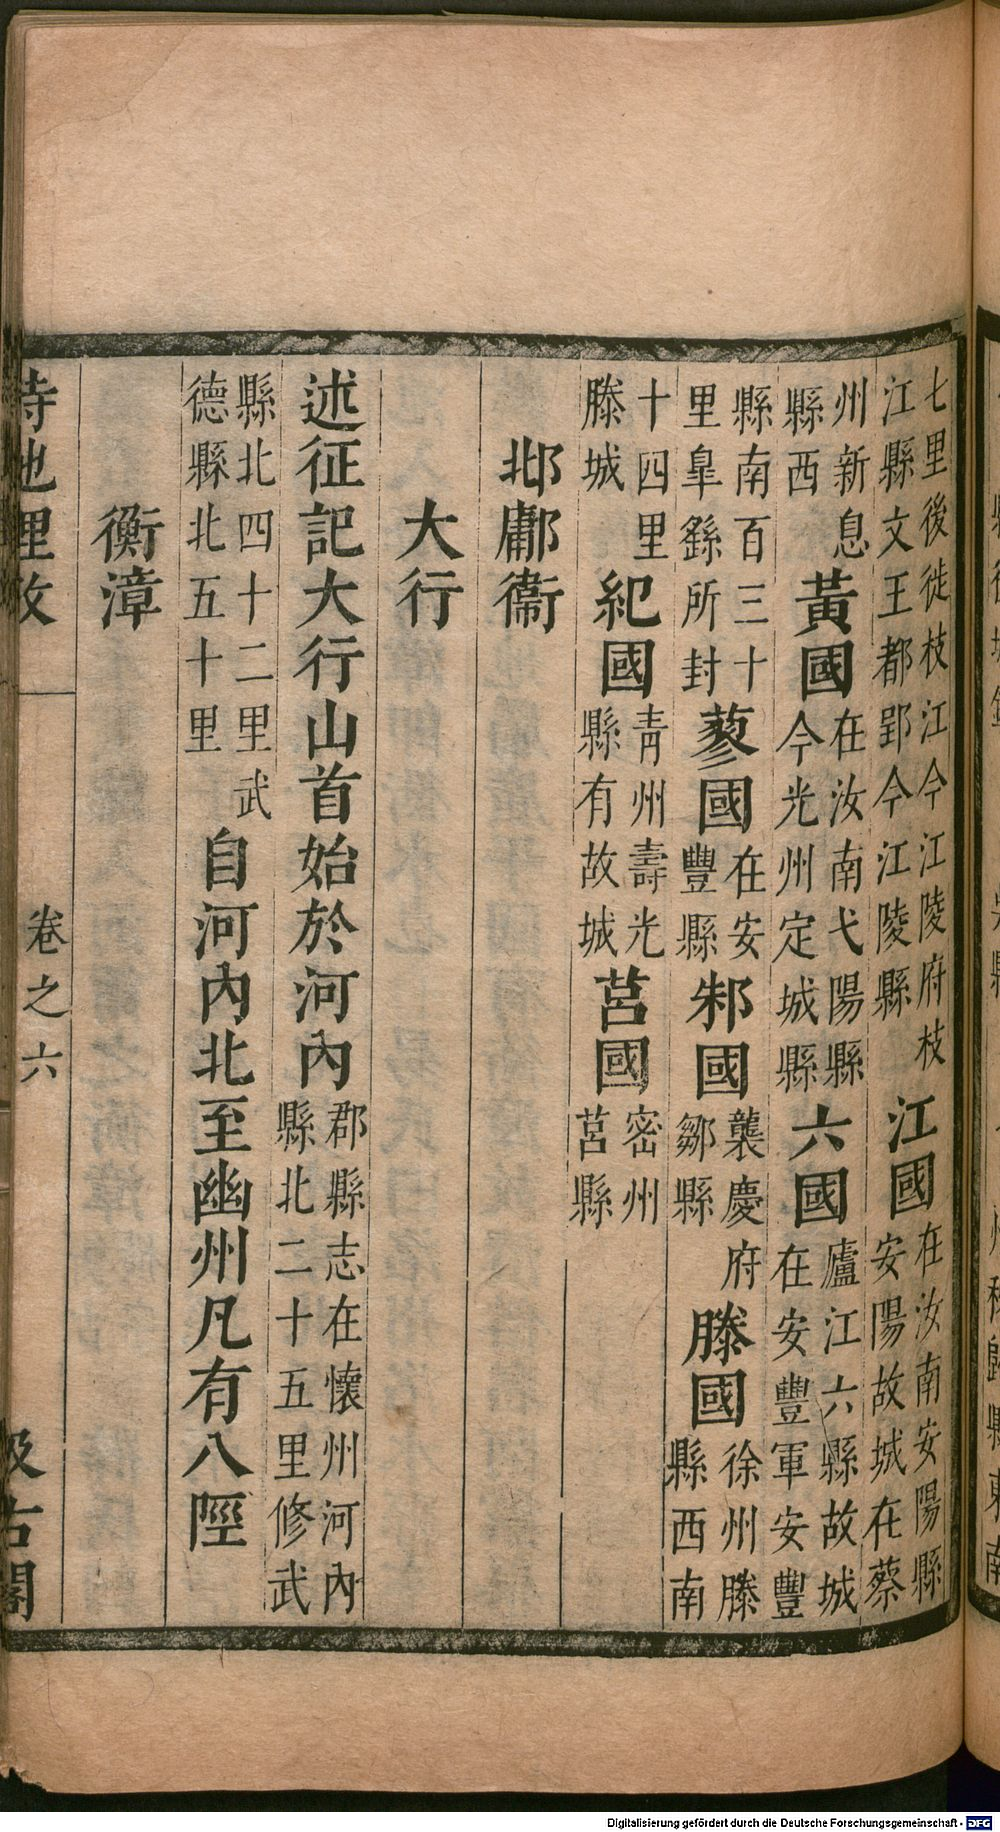 七里後徙枝江今江陵府枝江縣文王都郢今江陵縣江國在汝南安陽縣安陽故城在蔡
州新息縣西黃國在汝南弋陽縣今光州定城縣六國廬江六縣故城在安豐軍安豐
縣南百三十里臯繇所封蓼國在安豐縣邾國襲慶府鄒縣滕國徐州滕縣西南
十四里滕城紀國青州壽光縣有故城莒國密州莒縣
邶鄘衞
大行
述征記大行山首始於河內郡縣志在懷州河內縣北二十五里修武
縣北四十二里武德縣北五十里自河內北至幽州凡有八陘
衡漳
詩地理攷 卷之六 汲古閣
Digitalisierung gefördert durch die Deutsche Forschungsgemeinschaft - DFG